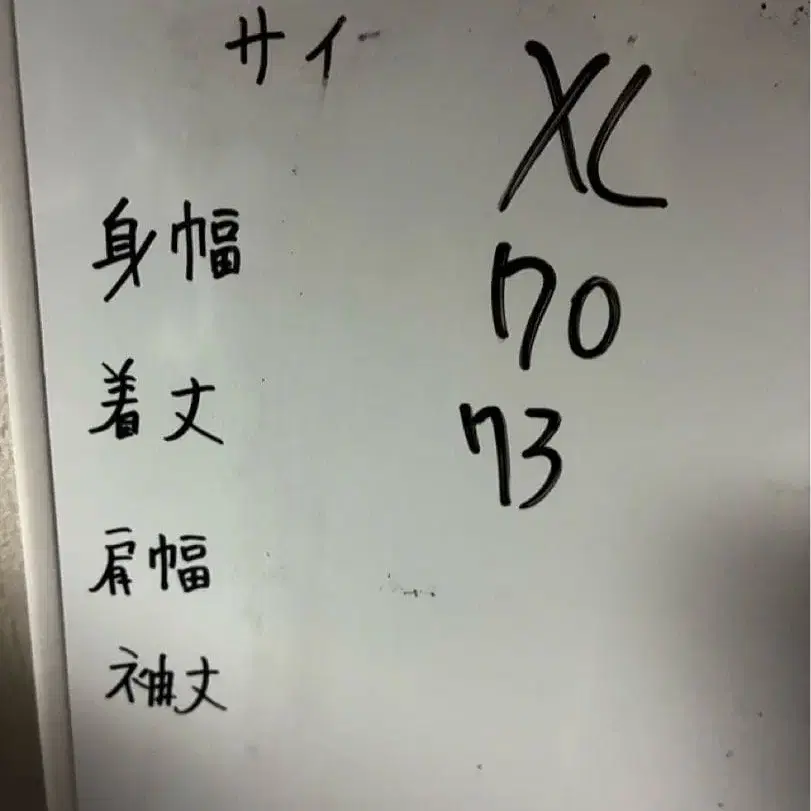 サイ XL
身幅 70
着丈 73
肩幅
袖丈